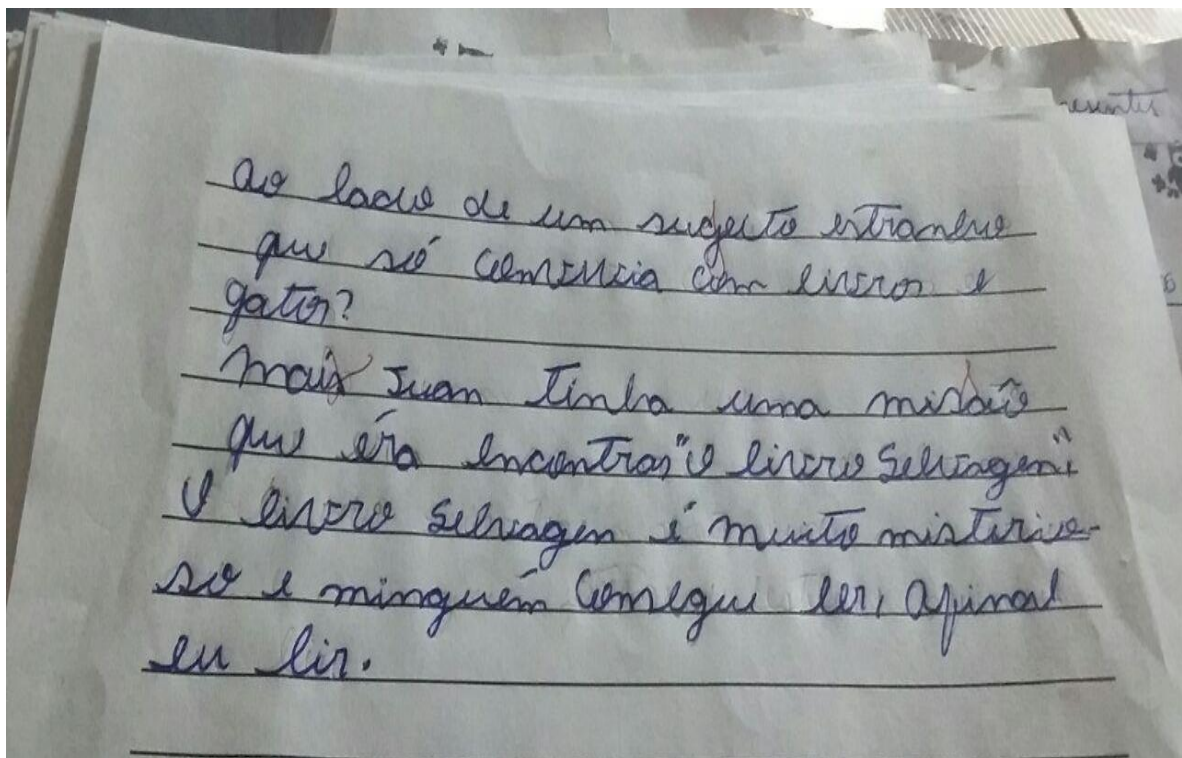 esentes
ao lado de um sugeito estranho
que só convivia com livros e
gatos?
mais Juan tinha uma missão
que éra encontrar "O livro Selvagem"
O livro Selvagem é muito misterio-
so e ninguém consegue ler, apinal
eu lir.